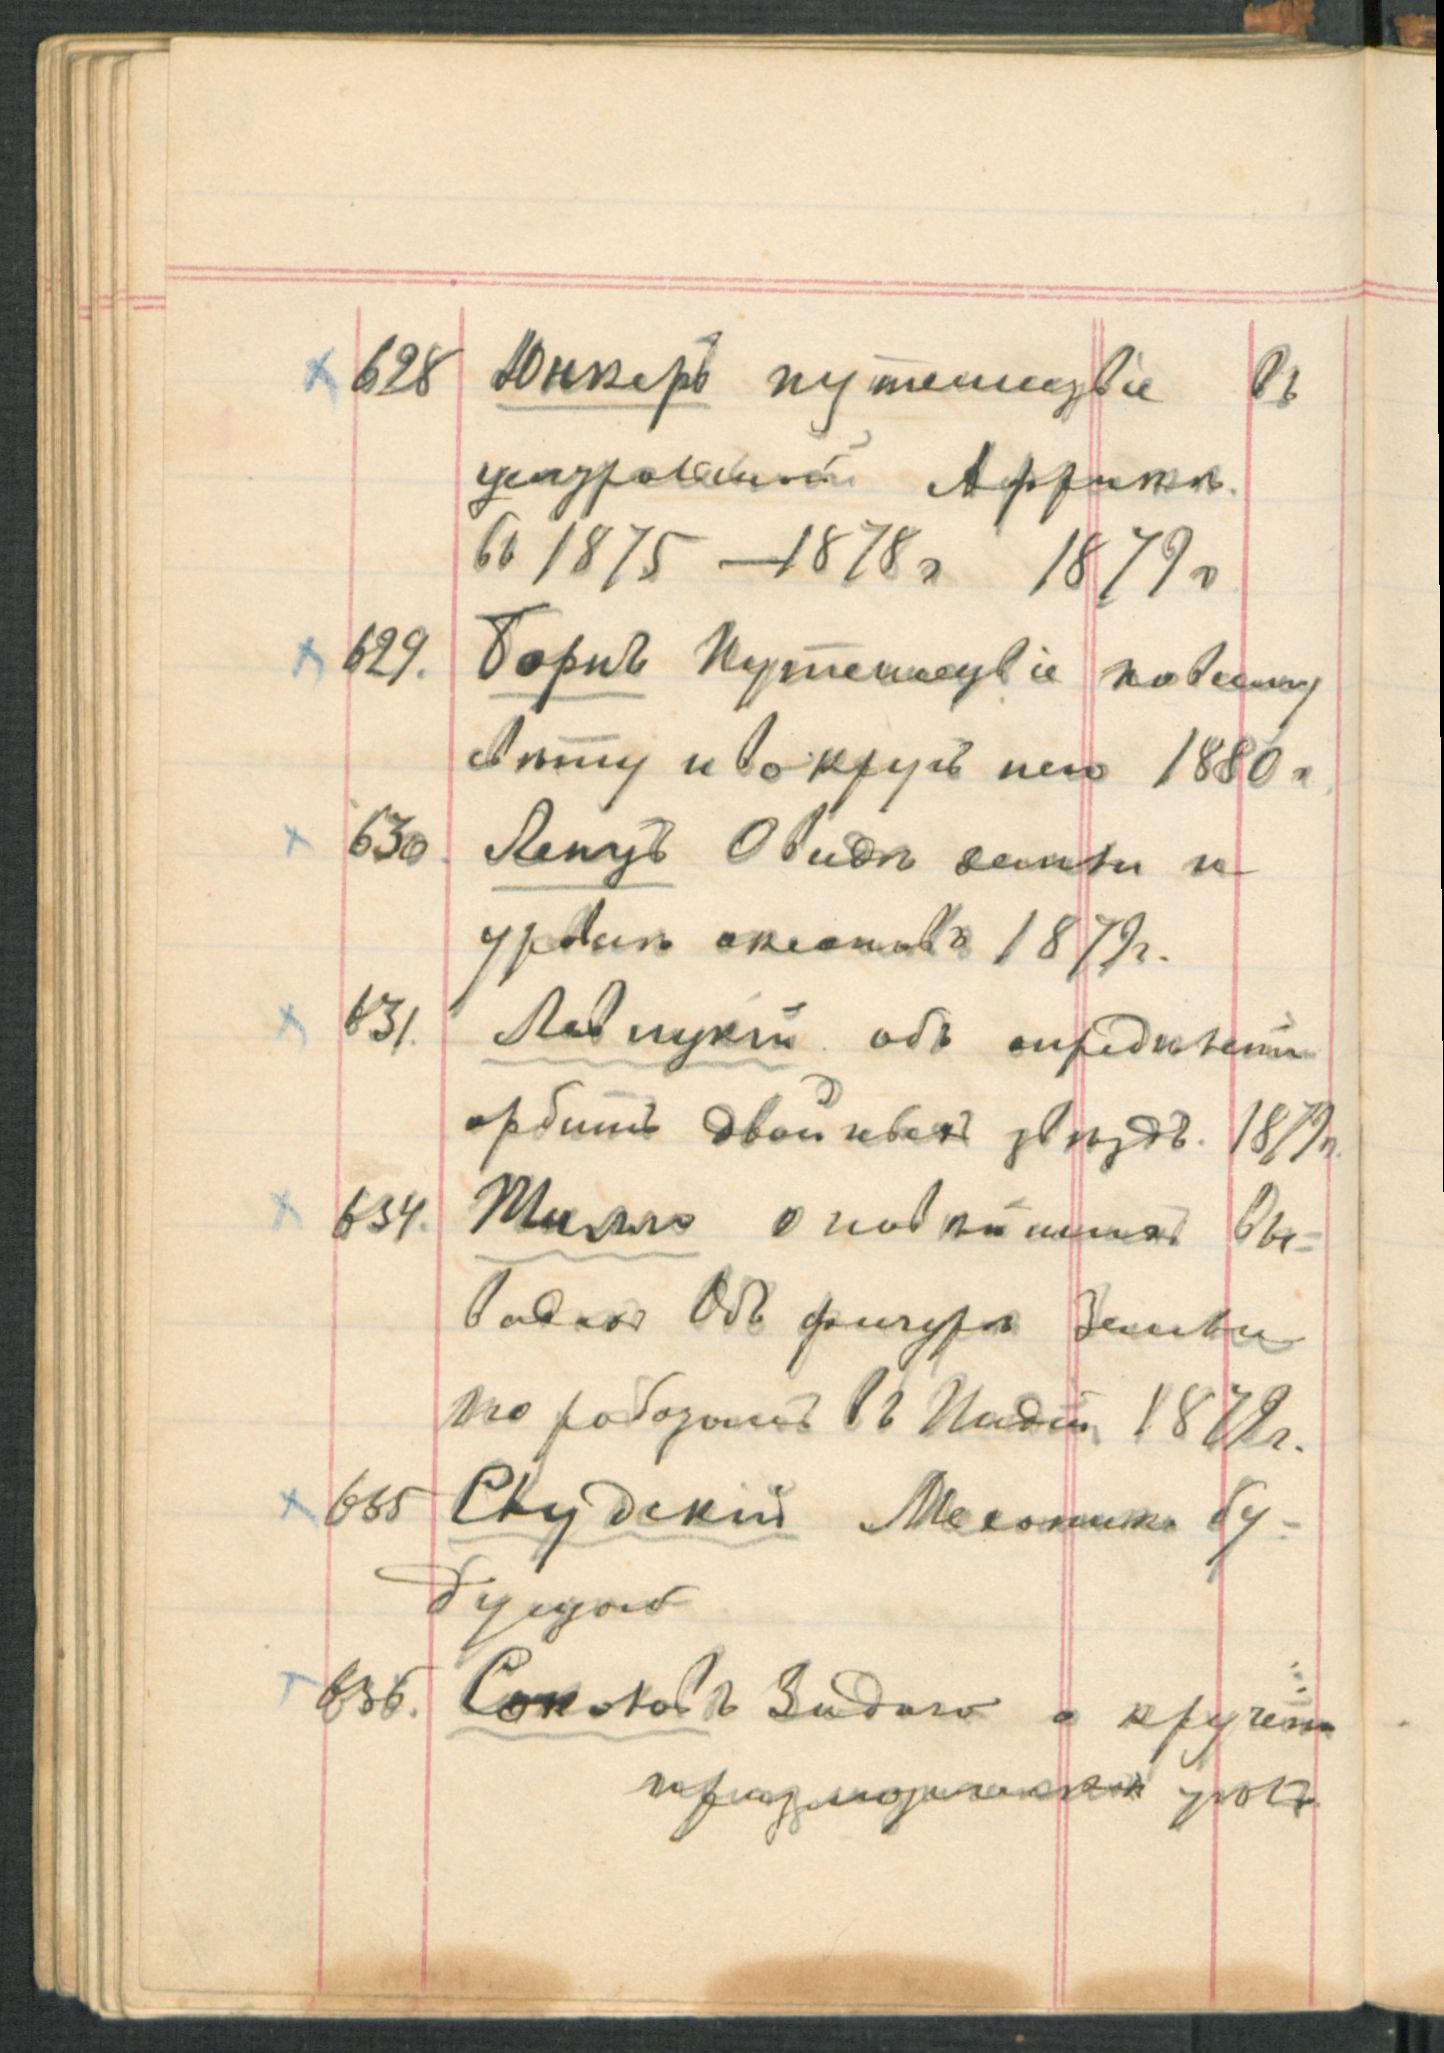 628 Юнкеръ путешествіе въ
центральной Африкѣ
въ 1875 — 1878 г 1879 г
629. Бернъ Путешествіе по всему
свѣту и вокругъ него 1880 г.
630. О видѣ земли и
уровнѣ океановъ 1879 г.
631. Левицкій объ опредѣленіи
орбитъ двойныхъ звѣздъ. 1879 г.
634. Тилло о новѣйшихъ вы=
водахъ Объ фигурѣ Земли
по работамъ въ Индіи 1879 г.
635 Слудскій Механика бу-
636. Соколовъ Задача о крученіи
призматическихъ